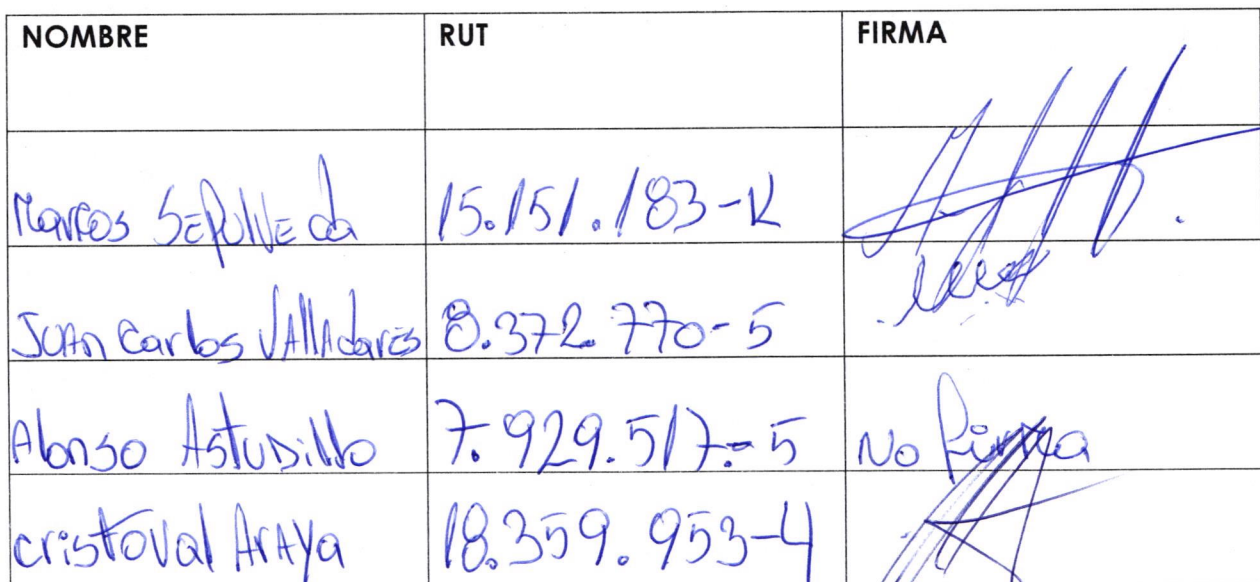 NOMBRE RUT FIRMA
Marcos SEPULVEda 15.151.183-K
JUAn Carlos VAllAdares 8.372.770-5
Alonso AstuDillo 7.929.517.-5 No firma
cristoval ArAya 18.359.953-4